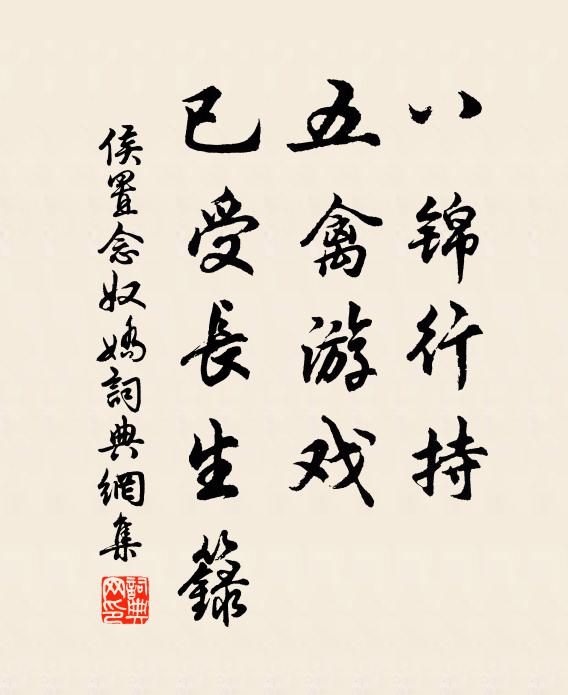 八锦行持
五禽游戏
已受長生籙
侯置念奴嬌詞典網集
詞典網印